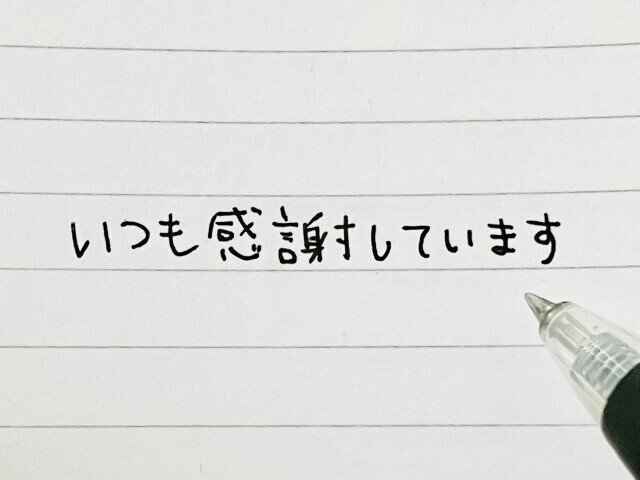 いつも感謝しています